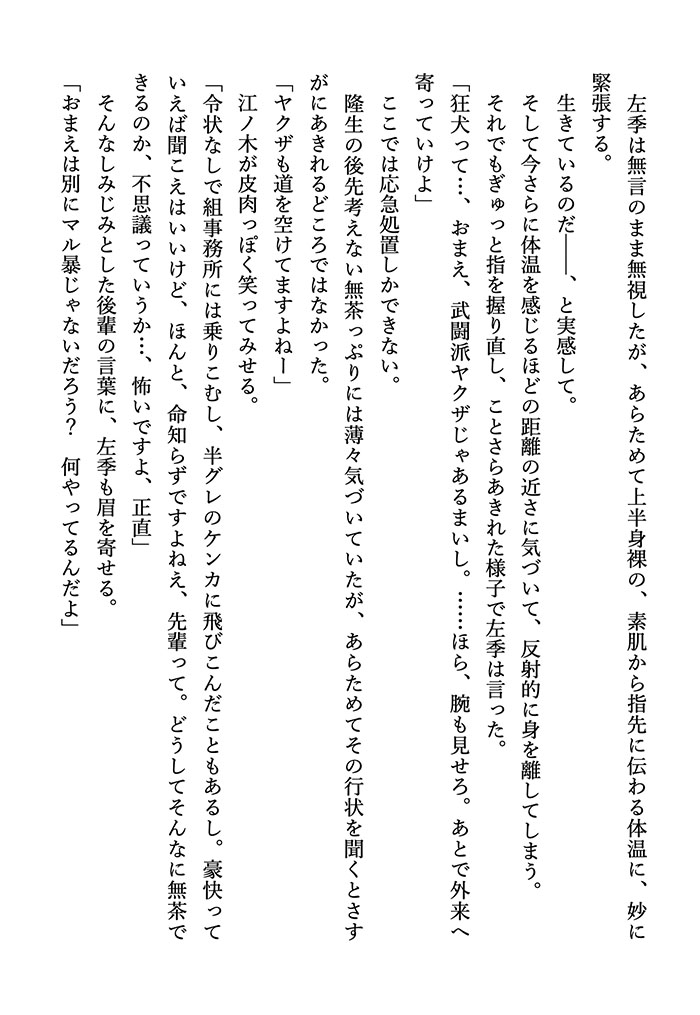 左季は無言のまま無視したが、あらためて上半身裸の、素肌から指先に伝わる体温に、妙に
緊張する。
　生きているのだ――、と実感して。
　そして今さらに体温を感じるほどの距離の近さに気づいて、反射的に身を離してしまう。
　それでもぎゅっと指を握り直し、ことさらあきれた様子で左季は言った。
「狂犬って…、おまえ、武闘派ヤクザじゃあるまいし。……ほら、腕も見せろ。あとで外来へ
寄っていけよ」
　ここでは応急処置しかできない。
　隆生の後先考えない無茶っぷりには薄々気づいていたが、あらためてその行状を聞くとさす
がにあきれるどころではなかった。
「ヤクザも道を空けてますよねー」
　江ノ木が皮肉っぽく笑ってみせる。
「令状なしで組事務所には乗りこむし、半グレのケンカに飛びこんだこともあるし。豪快って
いえば聞こえはいいけど、ほんと、命知らずですよねえ、先輩って。どうしてそんなに無茶で
きるのか、不思議っていうか…、怖いですよ、正直」
　そんなしみじみとした後輩の言葉に、左季も眉を寄せる。
「おまえは別にマル暴じゃないだろう？　何やってるんだよ」